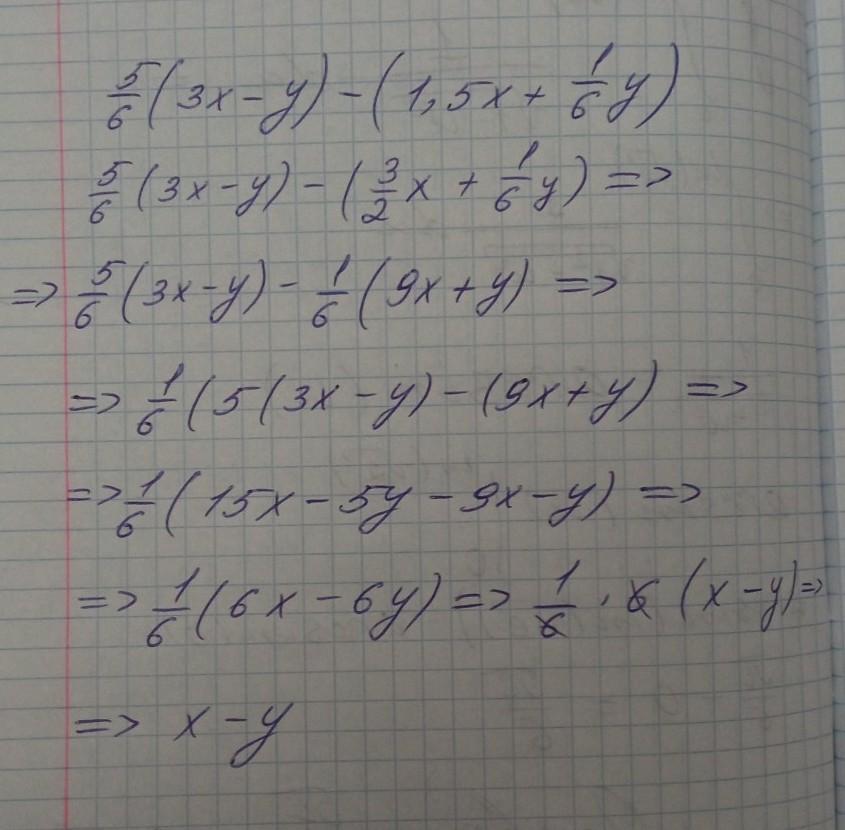 5/6 (3x - y) - (1,5x + 1/6 y)
5/6 (3x - y) - (3/2 x + 1/6 y) =>
=> 5/6 (3x - y) - 1/6 (9x + y) =>
=> 1/6 (5(3x - y) - (9x + y) =>
=> 1/6 (15x - 5y - 9x - y) =>
=> 1/6 (6x - 6y) => 1/6 · 6 (x - y) =>
=> x - y